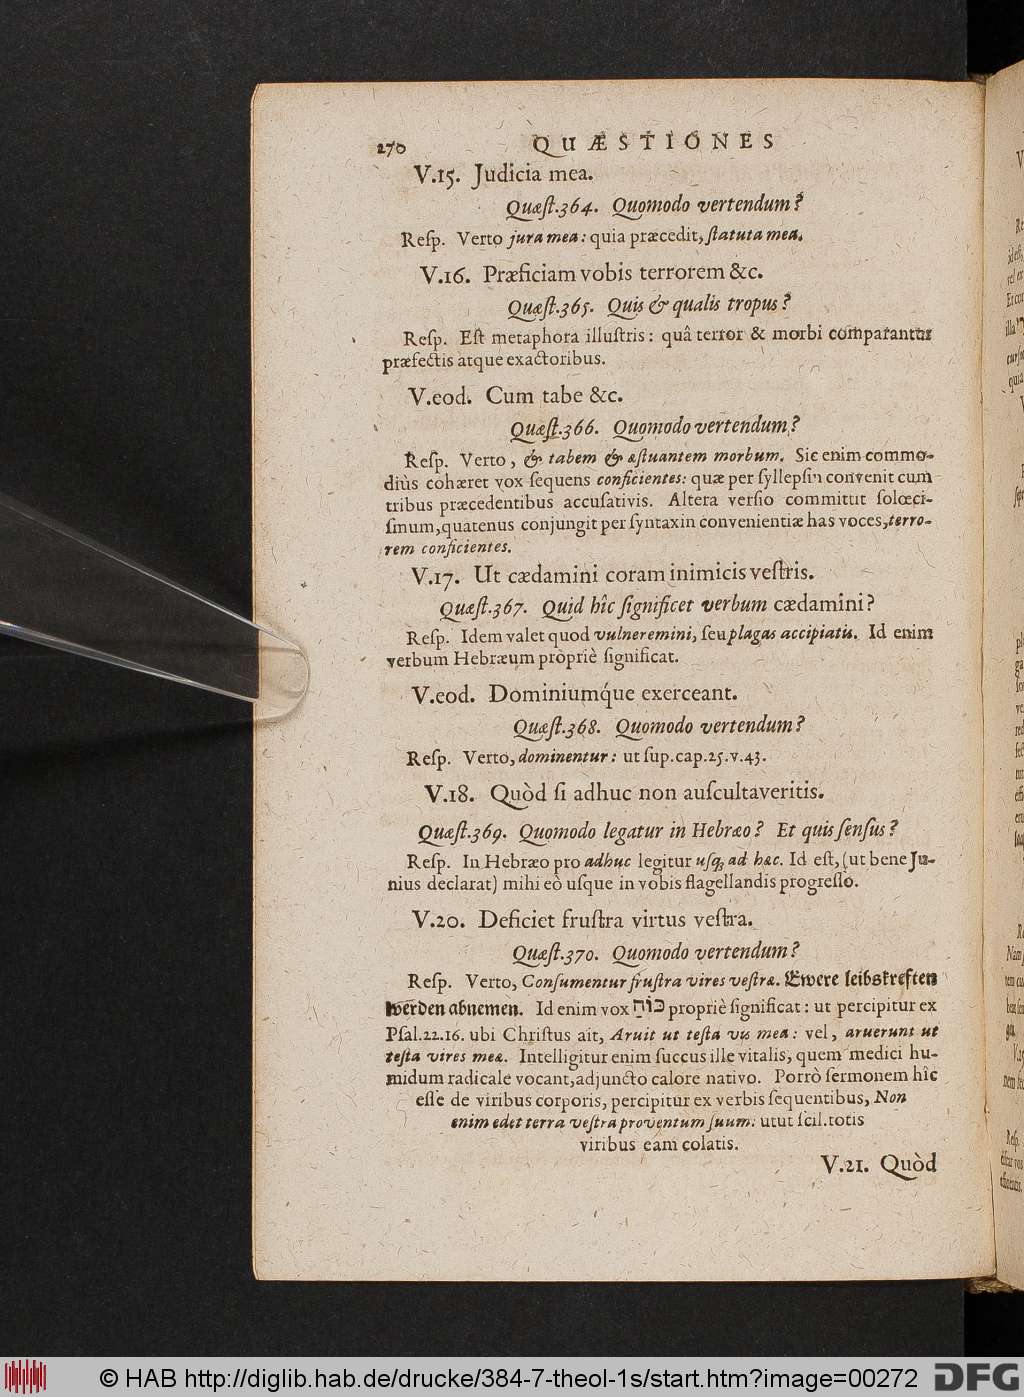 270 QUÆSTIONES
V.15. Judicia mea.
Quæſt.364. Quomodo vertendum?
Reſp. Verto jura mea: quia præcedit, ſtatuta mea.
V.16. Præficiam vobis terrorem &c.
Quæſt.365. Quis & qualis tropus?
Reſp. Eſt metaphora illuſtris: quâ terror & morbi comparantur
præfectis atque exactoribus.
V.eod. Cum tabe &c.
Quæſt.366. Quomodo vertendum?
Reſp. Verto, & tabem & æſtuantem morbum. Sic enim commo-
diùs cohæret vox ſequens conficientes: quæ per ſyllepſin convenit cum
tribus præcedentibus accuſativis. Altera verſio committit ſolœci-
ſmum, quatenus conjungit per ſyntaxin convenientiæ has voces, terro-
rem conficientes.
V.17. Ut cædamini coram inimicis veſtris.
Quæſt.367. Quid hîc ſignificet verbum cædamini?
Reſp. Idem valet quod vulneremini, ſeu plagas accipiatis. Id enim
verbum Hebræum propriè ſignificat.
V.eod. Dominiumq́ue exerceant.
Quæſt.368. Quomodo vertendum?
Reſp. Verto, dominentur: ut ſup.cap.25.v.43.
V.18. Quòd ſi adhuc non auſcultaveritis.
Quæſt.369. Quomodo legatur in Hebræo? Et quis ſenſus?
Reſp. In Hebræo pro adhuc legitur uſq; ad hæc. Id eſt, (ut bene Ju-
nius declarat) mihi eò uſque in vobis flagellandis progreſſo.
V.20. Deficiet fruſtra virtus veſtra.
Quæſt.370. Quomodo vertendum?
Reſp. Verto, Conſumentur fruſtra vires veſtræ. Ewere leibskreften
werden abnemen. Id enim vox כֹּוחַ propriè ſignificat: ut percipitur ex
Pſal.22.16. ubi Chriſtus ait, Aruit ut teſta vis mea: vel, aruerunt ut
teſta vires meæ. Intelligitur enim ſuccus ille vitalis, quem medici hu-
midum radicale vocant, adjuncto calore nativo. Porrò ſermonem hîc
eſſe de viribus corporis, percipitur ex verbis ſequentibus, Non
enim edet terra veſtra proventum ſuum: utut ſcil. totis
viribus eam colatis.
V.21. Quòd
© HAB http://diglib.hab.de/drucke/384-7-theol-1s/start.htm?image=00272
DFG